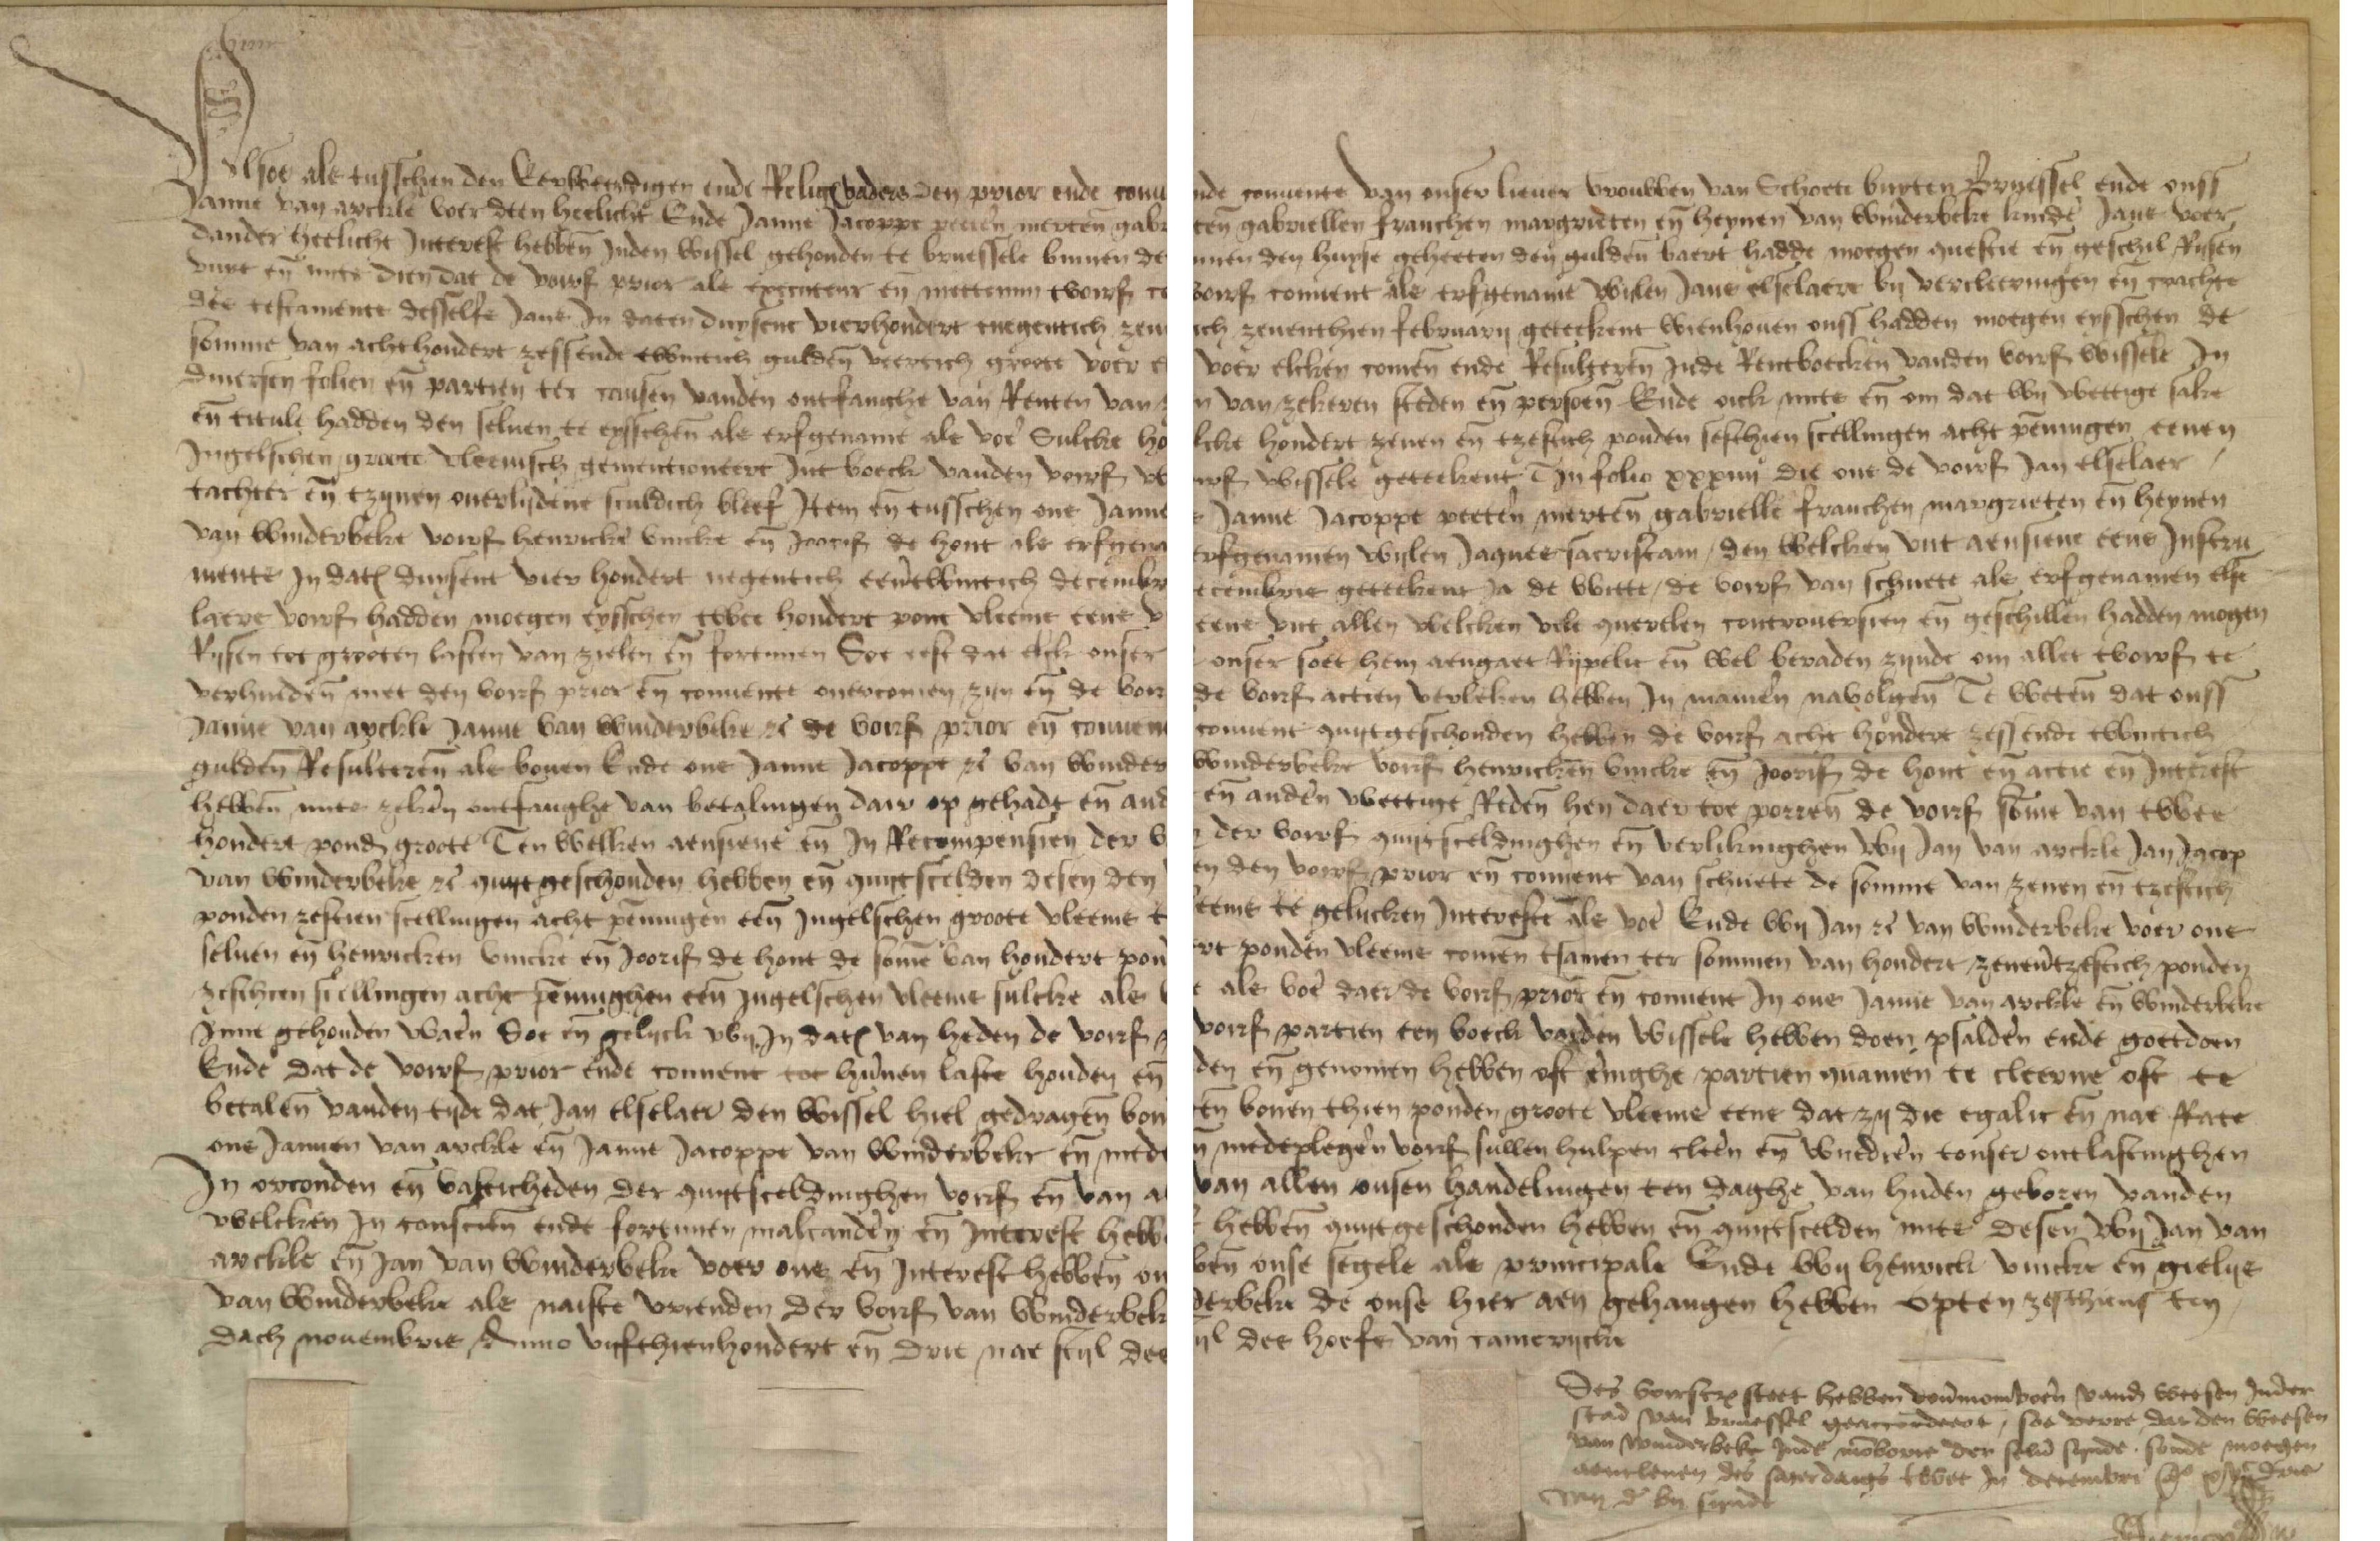 Alsoe als tusschen den Eerweerdigen ende Religi vaders den prior ende conu
Janne van arckle voer deen heelicht Ende Janne Jacoppe peeten merten gabr
dander heelicht Interest hebben Inden wissel gehouden te bruessele binnen de
vute en mits dien dat de voirs prior als executeur en mettemin tvoirs co
des testaments desselfs Jans In daten duysent vierhondert tnegentich zeu
somme van achthondert zessende twintich gulden veertich groete voer e
diuersen folien en partien ter causen vanden ontfanghe van Renten van
en titule hadden den seluen te eysschen als erfgename als voer Sulcke ho
Ingelschen groote vleemsch gementioneert Int boeck vanden voirs w
tachter en tzynen ouerlydene sculdich bleef Item en tusschen ons Janne
van winderbeke voirs henricke vincke en Jooris de hont als erfgena
ments In dat duysent vier hondert negentich eentwintich decembr
laers voirs hadden moegen eysschen twee hondert pont vleems eens v
Rysen tot grooten lasten van zielen en fortunen Soe eest dat elck onser
verhueden met den voirs prior en conuente ouercomen zyn en de voir
Janne van arckle Janne van winderbeke rc de voirs prior en conuen
gulden Resulteren als bouen Ende ons Janne Jacoppe rc van winder
hebben mits zeker ontfanghe van betalingen dair op gehadt en and
hondert pond groote Ten welken aensiene en In Recompensien der v
van winderbeke rc quytgeschouden hebben en quytscelden desen den
ponden zestien scellingen acht penningen een Ingelschen groote vleems t
seluen en henricken vincke en Jooris de hont de some van hondert pon
zesthien scellingen acht penninghen een Ingelschen vleems sulcke als
Inne gehouden waen Soe en gelyck wy In dat van heden de voirs
Ende dat de voirs prior ende conuent tot hunen laste houden en
betalen vanden tyde dat Jan elselaer den wissel hiel gedragen bou
ons Jannen van arckle en Janne Jacoppe van winderbeke en mede
In orconden en vasticheden der quytsceldinghen voirs en van a
welcken In conscien ende fortunen malcanderen en Interest hebb
arckle en Jan van winderbeke voer ons en Interest hebben on
van winderbeke als naiste vrienden der voirs van winderbek
dach nouembris Anno vyfthienhondert en drie nae styl des
nde conuente van onser lieuer vrouwen van Schoete buyten Bruessel ende onss
ten gabriellen franchen margrieten en heynen van winderbeke kinder Jans voer
nnen den huyse geheeten den gulden baert hadde moegen questie en geschil Rysen
voirs conuent als erfgename wylen Jans elselaers by vercleeringen en crachte
ich zeuenthien february geteekent wienhouen onss hadden moegen eysschen de
voer elcken comen ende Resulteren Inde Rentboecken vanden voirs wissele In
n van zekeren steden en persoen Ende oick mits en om dat wy wettige sake
lcke hondert zeuen en tzestich ponden sesthien scellingen acht penningen eenen
irs wissele geteekent T In folio xxxiiii die ons de voirs Jan elselaer
Janne Jacoppe peeten merten gabrielle franchen margrieten en heynen
erfgenamen wylen Jaques sacristain den welcken vut aensiene eens Instru
ecembris geteekent Ja de witte de voirs van schuete als erfgenamen else
eens vut allen welcken vele querelen controuersien en geschillen hadden mogen
onser soet hem aengaet Rypelic en wel beraden zynde om allet tvoirs te
de voirs actien verleken hebben In manieren navolgen Te weten dat onss
conuent quytgeschouden hebben de voirs acht hondert zessende twintich
winderbeke voirs henricken vincke en Jooris de hont en actie en Interest
en anderen wettige Reden hen daer toe porren de voirs some van twee
der voirs quytsceldinghen en verlikinghen wy Jan van arckle Jan Jacop
en den voirs prior en conuent van schuete de somme van zeuen en tzestich
eems te gelycken Intereste als voer Ende wy Jan rc van winderbeke voer ons
rt ponden vleems comen tsamen ter sommen van hondert zeuentzestich ponden
als voer daer de voirs prior en conuent In ons Janne van arckle en winderbeke
voirs partien ten boeck vanden wissele hebben doen psalderen ende goetdoen
den en genomen hebben oft eenighe partien quamen te cleerne oft te
en bouen thien ponden groote vleems eens dat zy die egalic en nae Rate
n medeplegeren voirs sullen hulpen cleeren en wuedren tonser ontlastinghen
van allen onsen handelingen ten daghe van huden geboren vanden
hebben quytgeschouden hebben en quytscelden mits desen wy Jan van
ben onse segele als principale Ende wy henrick vincke en gielys
derbeke de onse hier aen gehangen hebben opten zesthiensten
yl des hoefs van camerycke
Des voirscr steet hebben vanden weesen Inder
stad van bruessel geaccordeert soe verre dat den weesen
van winderbeke Inde der selver synde soude moegen
aencleuen des saterdaegs twee In decembri drie